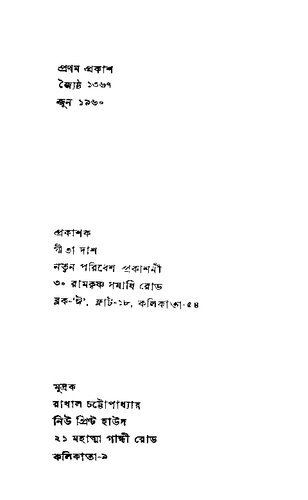 প্রথম প্রকাশ
জ্যৈষ্ঠ ১৩৬৭
জুন ১৯৬০
প্রকাশক
গীতা দাশ
নতুন পরিবেশ প্রকাশনী
৩০ রামকৃষ্ণ সমাধি রোড
ব্লক-'ই', ফ্লাট-১৮, কলিকাতা-৫৪
মুদ্রক
রাখাল চট্টোপাধ্যায়
নিউ প্রিন্ট হাউস
২১ মহাত্মা গান্ধী রোড
কলিকাতা-৯